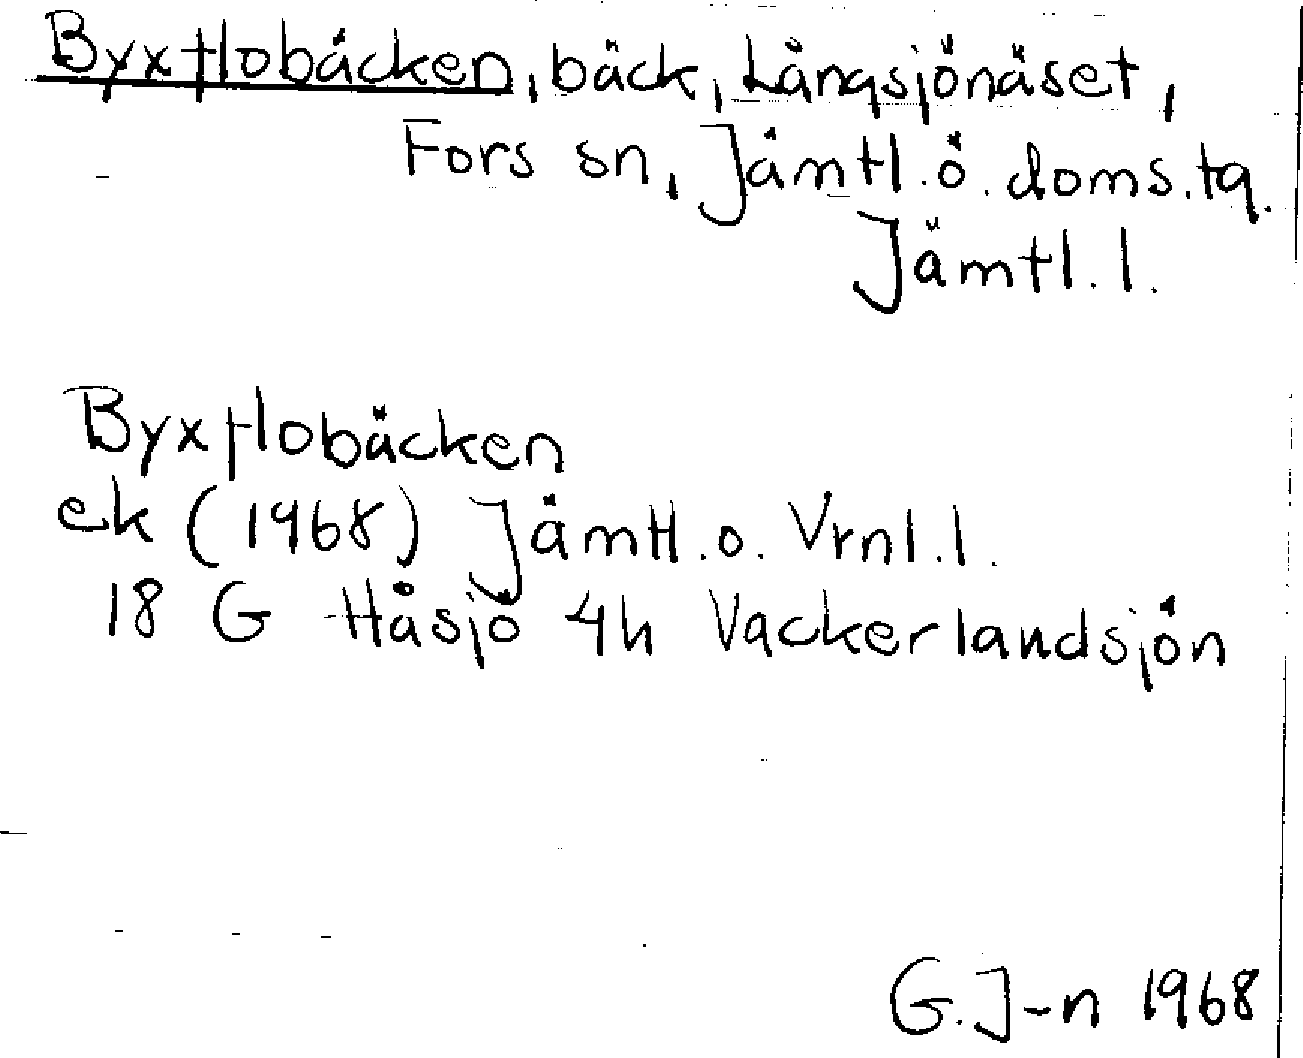 Byxflobäcken, bäck, Långsjönäset,
Fors sn, Jämtl.ö. doms.tg.
Jämtl.l.
Byxflobäcken
ek (1968) Jämtl.o. Vrnl.l.
18 G Håsjö 4h Vackerlandsjön
G.J-n 1968